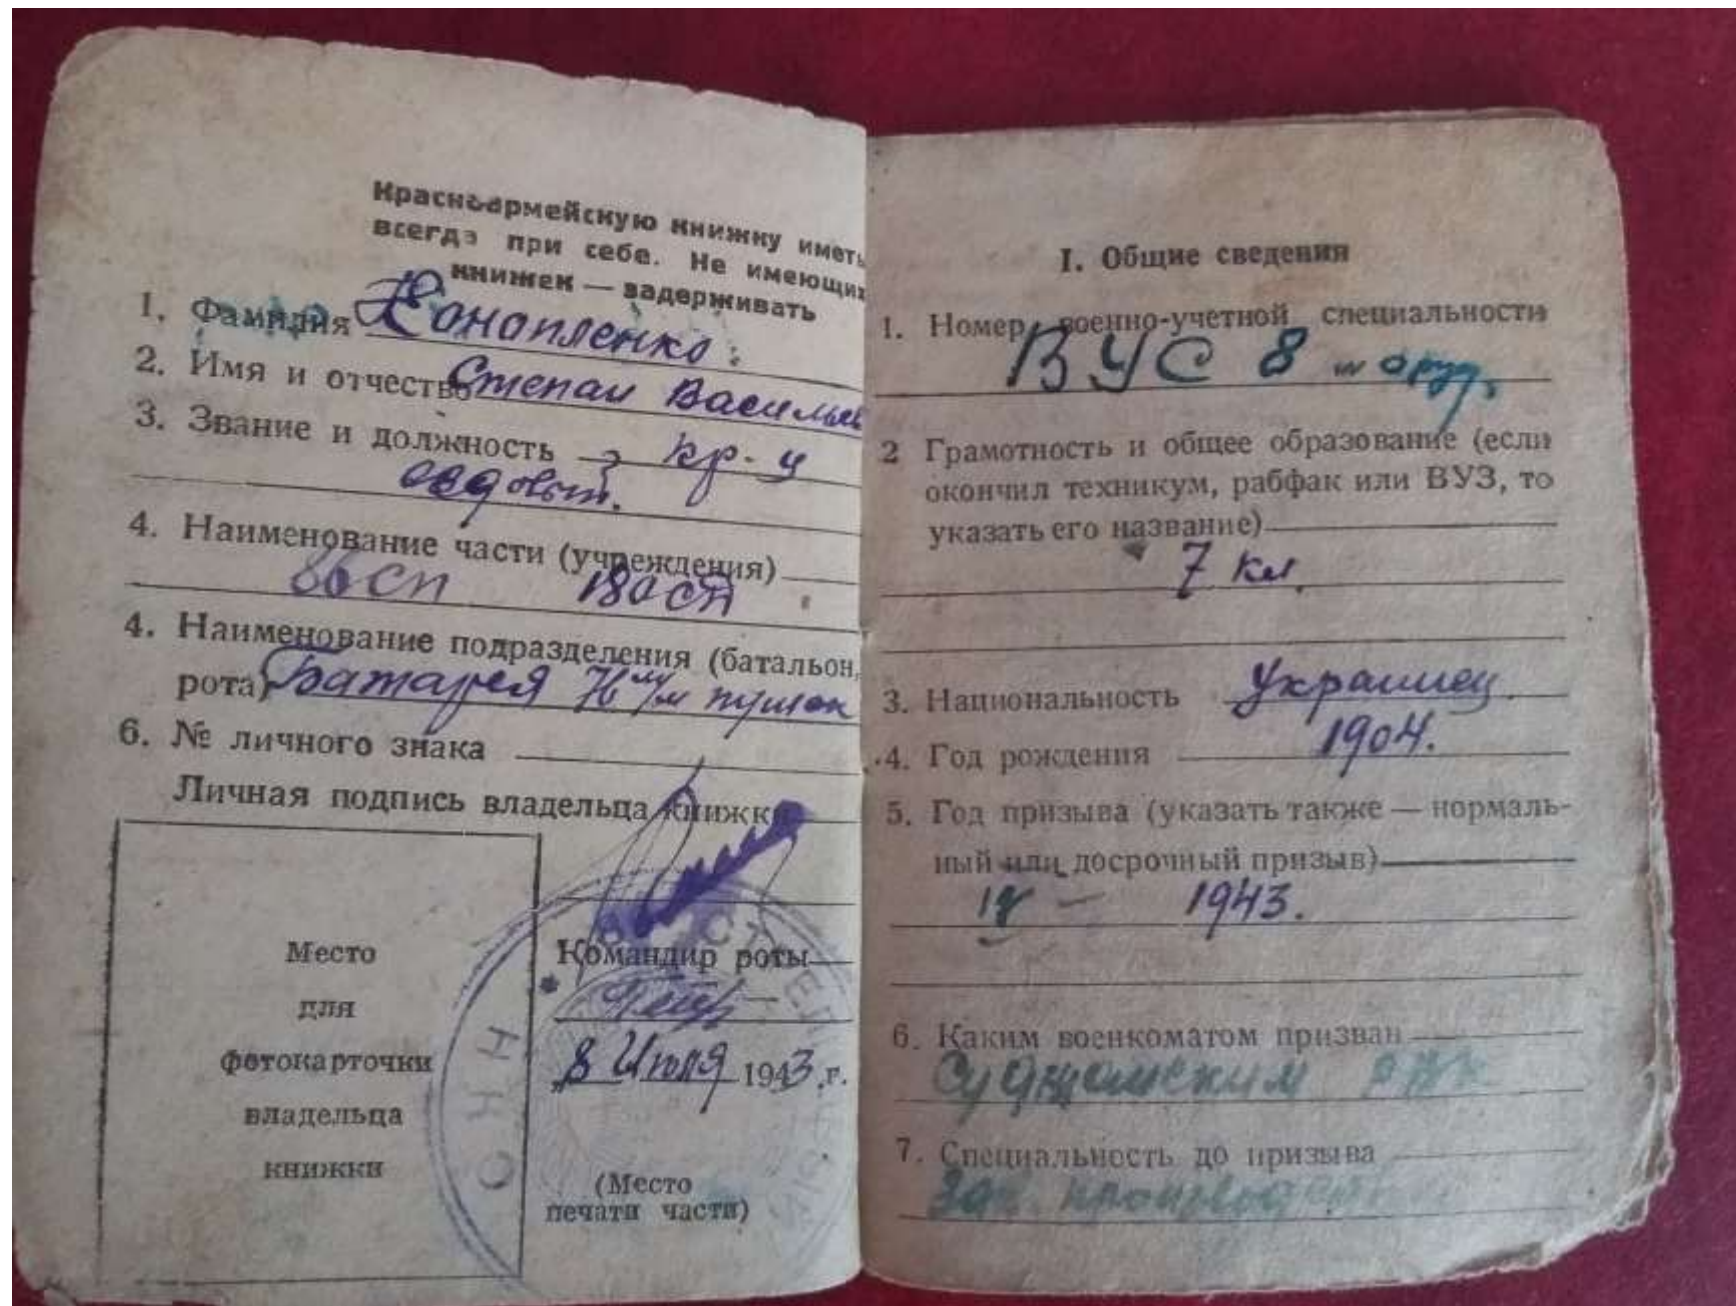 Красноармейскую книжку иметь
всегда при себе. Не имеющих
книжек — задерживать
1. Фамилия Конопленко
2. Имя и отчество Степан Васильев
3. Звание и должность кр-ц
ездовый.
4. Наименование части (учреждения)
86 сп 180 сд
4. Наименование подразделения (батальон,
рота) Батарея 76 м/м пушек
6. № личного знака
Личная подпись владельца книжки
Место
для
фотокарточки
владельца
книжки
Командир роты
8 Июля 1943 г.
(Место
печати части)
НКО
I. Общие сведения
1. Номер военно-учетной специальности
ВУС 8
2 Грамотность и общее образование (если
окончил техникум, рабфак или ВУЗ, то
указать его название)
7 кл.
3. Национальность Украинец.
4. Год рождения 1904.
5. Год призыва (указать также — нормаль-
ный или досрочный призыв)
1943.
6. Каким военкоматом призван
Суджанским РВК
7. Специальность до призыва
Зав.